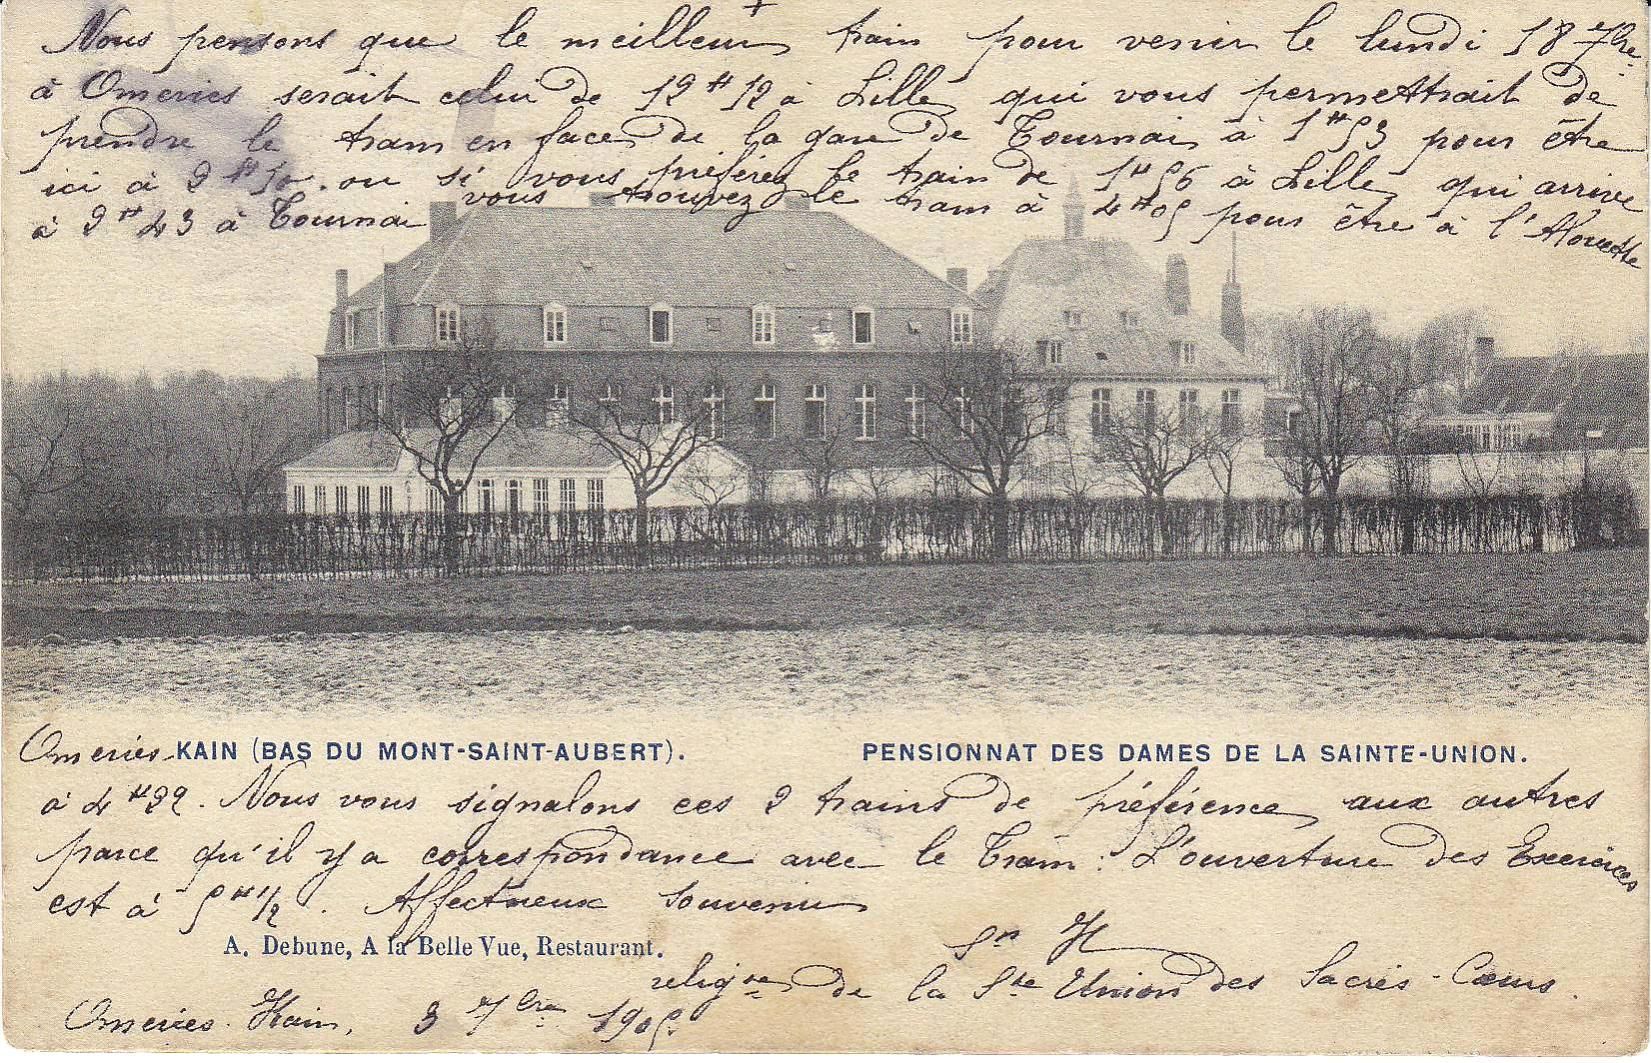 Nous pensons que le meilleur train pour venir le lundi 18 7bre
à Omeries serait celui de 12 H 12 à Lille qui vous permettrait de
prendre le tram en face de la gare de Tournai à 1 H 53 pour être
ici à 2 H 10. ou si vous préférez le train de 1 H 56 à Lille qui arrive
à 2 H 43 à Tournai vous trouvez le tram à 4 H 05 pour être à l'Alouette
Omeries KAIN (BAS DU MONT-SAINT-AUBERT). PENSIONNAT DES DAMES DE LA SAINTE-UNION.
à 4 H 22. Nous vous signalons ces 2 trains de préférence aux autres
parce qu'il y a correspondance avec le Tram: L'ouverture des Exercices
est à 5 H 1/2. Affectueux souvenir
A. Debune, A la Belle Vue, Restaurant.
Sr H
religse de la Ste Union des Sacrés-Cœurs.
Omeries. Kain, 3 7bre 1905.